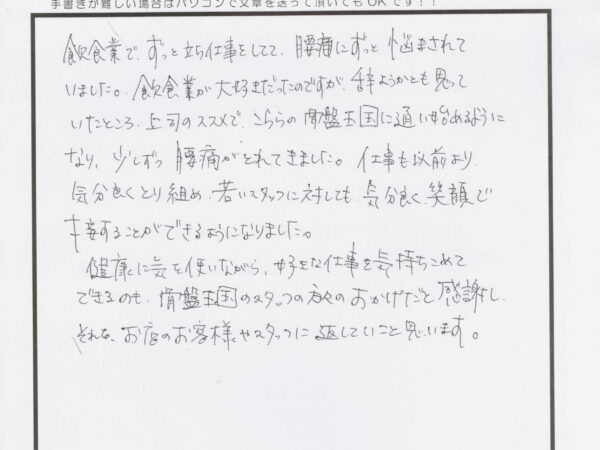 手書きが難しい場合はパソコンで文章を送って頂いてもOKです！！
飲食業で、ずっと立ち仕事をしてて、腰痛にずっと悩まされて
いました。飲食業が大好きだったのですが、辞ようかとも思って
いたところ、上司のススメで、こちらの骨盤王国に通い始めるように
なり、少しずつ腰痛がとれてきました。仕事も以前より、
気分良くとり組め、若いスタッフに対しても、気分良く、笑顔で
接することができるようになりました。
健康に気を使いながら、好きな仕事を気持ちこめて
できるのも、骨盤王国のスタッフの方々のおかげだと感謝し、
それを、お店のお客様やスタッフに返していこと思います。